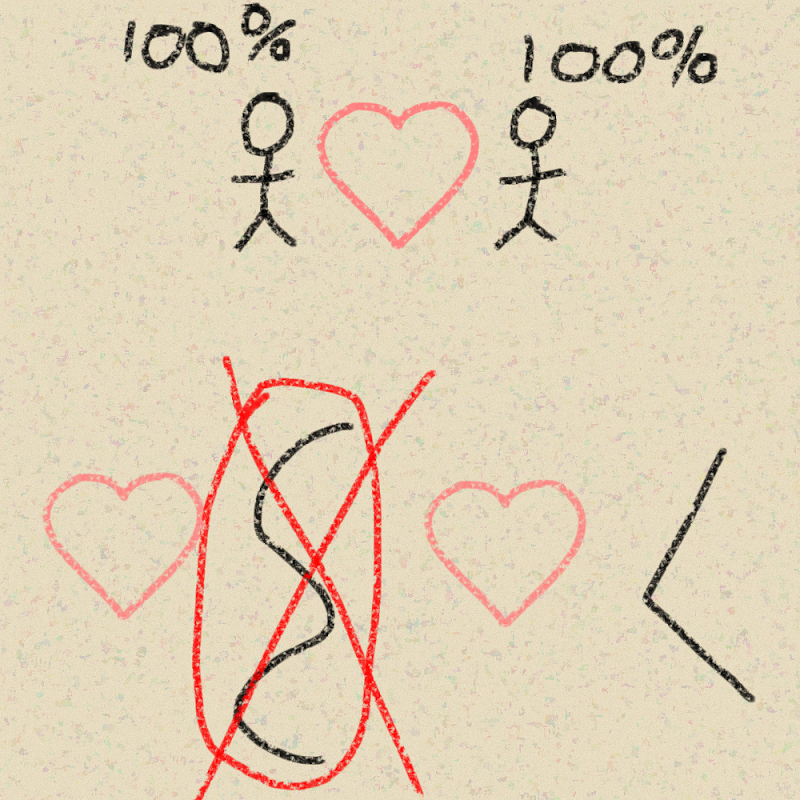 100% 100%